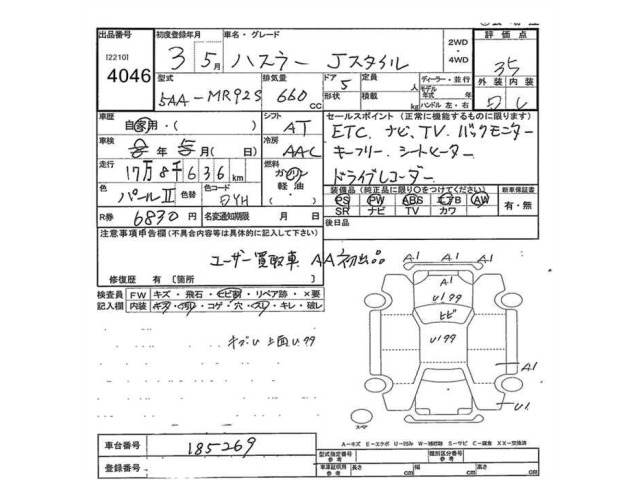 出品番号 初度登録年月 車名・グレード 評価点
[2210] 4046
3 5月 ハスラー Jスタイル 2WD・4WD 35
型式 排気量 ドア 定員 人 ディーラー・並行 外装 内装
5AA-MR92S 660 CC 5 形状 積載 kg モデル年式 年 ハンドル 左・右
車歴 自家用・( ) シフト AT セールスポイント(正常に機能するものに限ります)
車検 年 月( 日) 冷房 AAC ETC、ナビ、TV、バックモニター
走行 17万8千636km 燃料 ガソリン 軽油・ キーフリー、シートヒーター
色 パールⅡ 色コード ドライブレコーダー
装備品(純正品に限り○をつけてください) 新車保証書
PS PW ABS エアB AW 有・無
R券 6830円 名変通知期限 月 日 SR ナビ TV カワ
注意事項申告欄(不具合内容等は具体的に記入して下さい) 後日品
ユーザー買取車 AA初出品
修復歴 有[箇所 ]
検査員記入欄 FW キズ・飛石・ヒビ割・リペア跡・×要
内装 キズ・汚れ・コゲ・穴・スレ・キレ・破レ
A1 A1
U1 99
ヒビ
U1 99
A1
U1
スペア
A-キズ E-エクボ U-凹み W-補修跡 S-サビ C-腐食 XX-交換済
車台番号 185269
登録番号
型式指定番号 参考 類別区分番号 参考
車庫証明用 参考 長さ cm 幅 cm 高さ cm